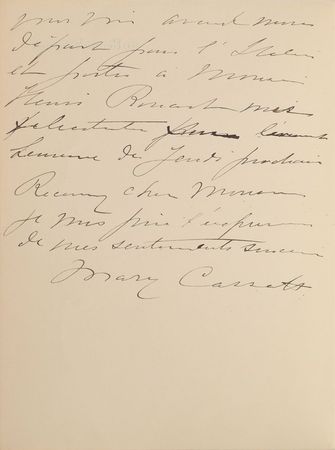 vous voir avant mon
départ pour l'Italie
et portez à Monsieur
Henri Rouart mes
félicitations
heureux de Jeudi prochain
Recevez cher Monsieur
je vous prie l'expression
de mes sentiments sincères
Mary Cassatt